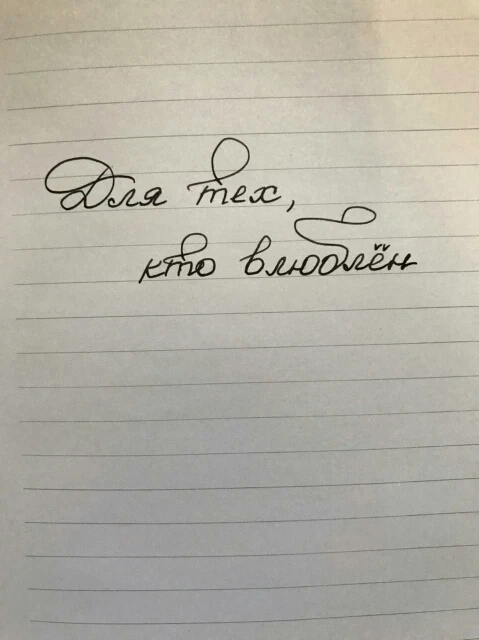 Для тех,
кто влюблён